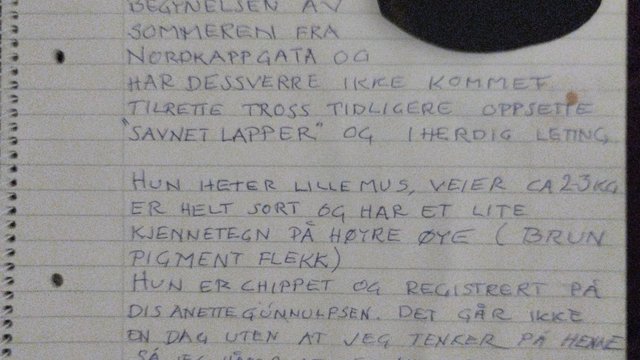 BEGYNELSEN AV
SOMMEREN FRA
NORDKAPPGATA OG
HAR DESSVERRE IKKE KOMMET
TILRETTE TROSS TIDLIGERE OPPSETTE
"SAVNET LAPPER" OG IHERDIG LETING
HUN HETER LILLEMUS, VEIER CA 2-3 KG
ER HELT SORT OG HAR ET LITE
KJENNETEGN PÅ HØYRE ØYE ( BRUN
PIGMENT FLEKK)
HUN ER CHIPPET OG REGISTRERT PÅ
DIS ANETTE GUNNULPSEN. DET GÅR IKKE
EN DAG UTEN AT JEG TENKER PÅ HENNE
SÅ JEG